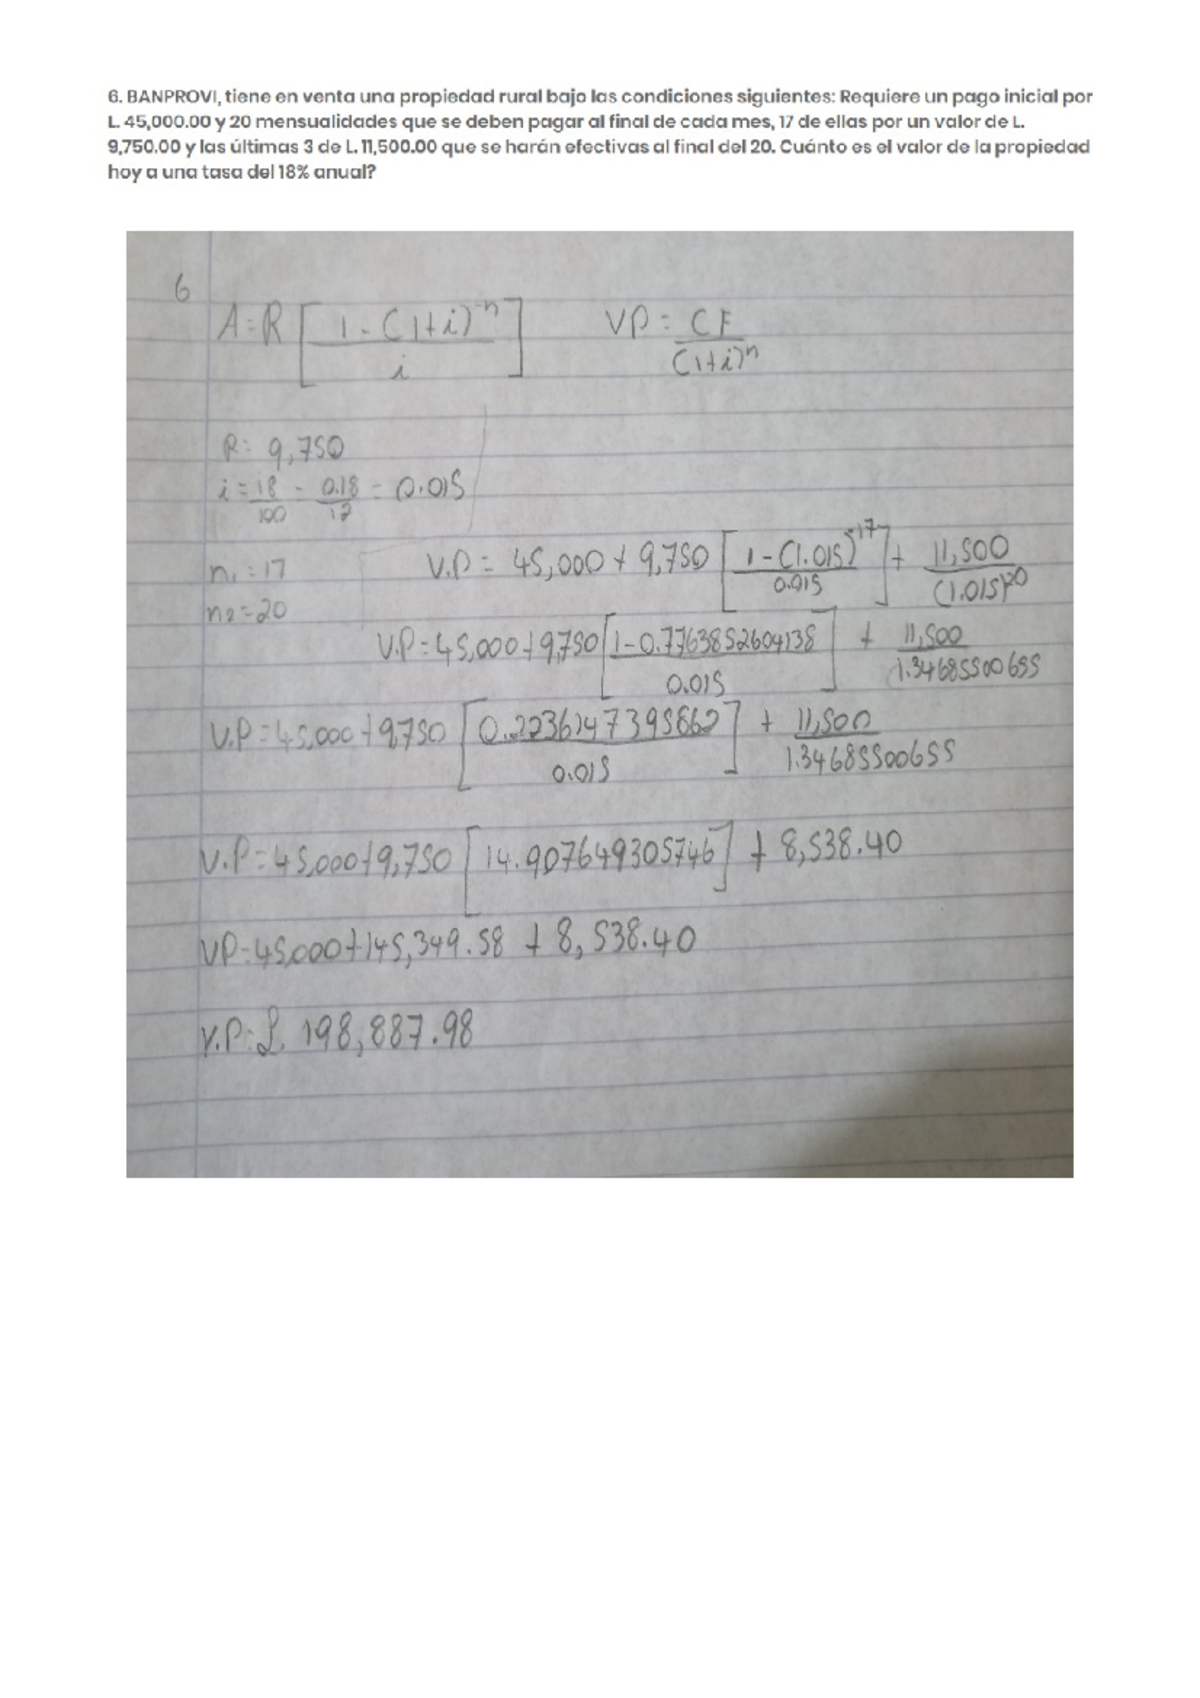 6. BANPROVI, tiene en venta una propiedad rural bajo las condiciones siguientes: Requiere un pago inicial por
L. 45,000.00 y 20 mensualidades que se deben pagar al final de cada mes, 17 de ellas por un valor de L.
9,750.00 y las últimas 3 de L. 11,500.00 que se harán efectivas al final del 20. Cuánto es el valor de la propiedad
hoy a una tasa del 18% anual?
6
A=R [ 1-(1+i)^-n / i ]   VP= CF / (1+i)^n
R= 9,750
i = 18/100 - 0.18/12 = 0.015
n1 = 17
V.P = 45,000 + 9,750 [ 1-(1.015)^-17 / 0.015 ] + 11,500 / (1.015)^20
n2 = 20
V.P = 45,000 + 9,750 [ 1-0.7763852604138 / 0.015 ] + 11,500 / 1.34685500655
V.P = 45,000 + 9,750 [ 0.2236147395862 / 0.015 ] + 11,500 / 1.34685500655
V.P = 45,000 + 9,750 [ 14.907649305746 ] + 8,538.40
VP = 45,000 + 145,349.58 + 8,538.40
V.P = L. 198,887.98